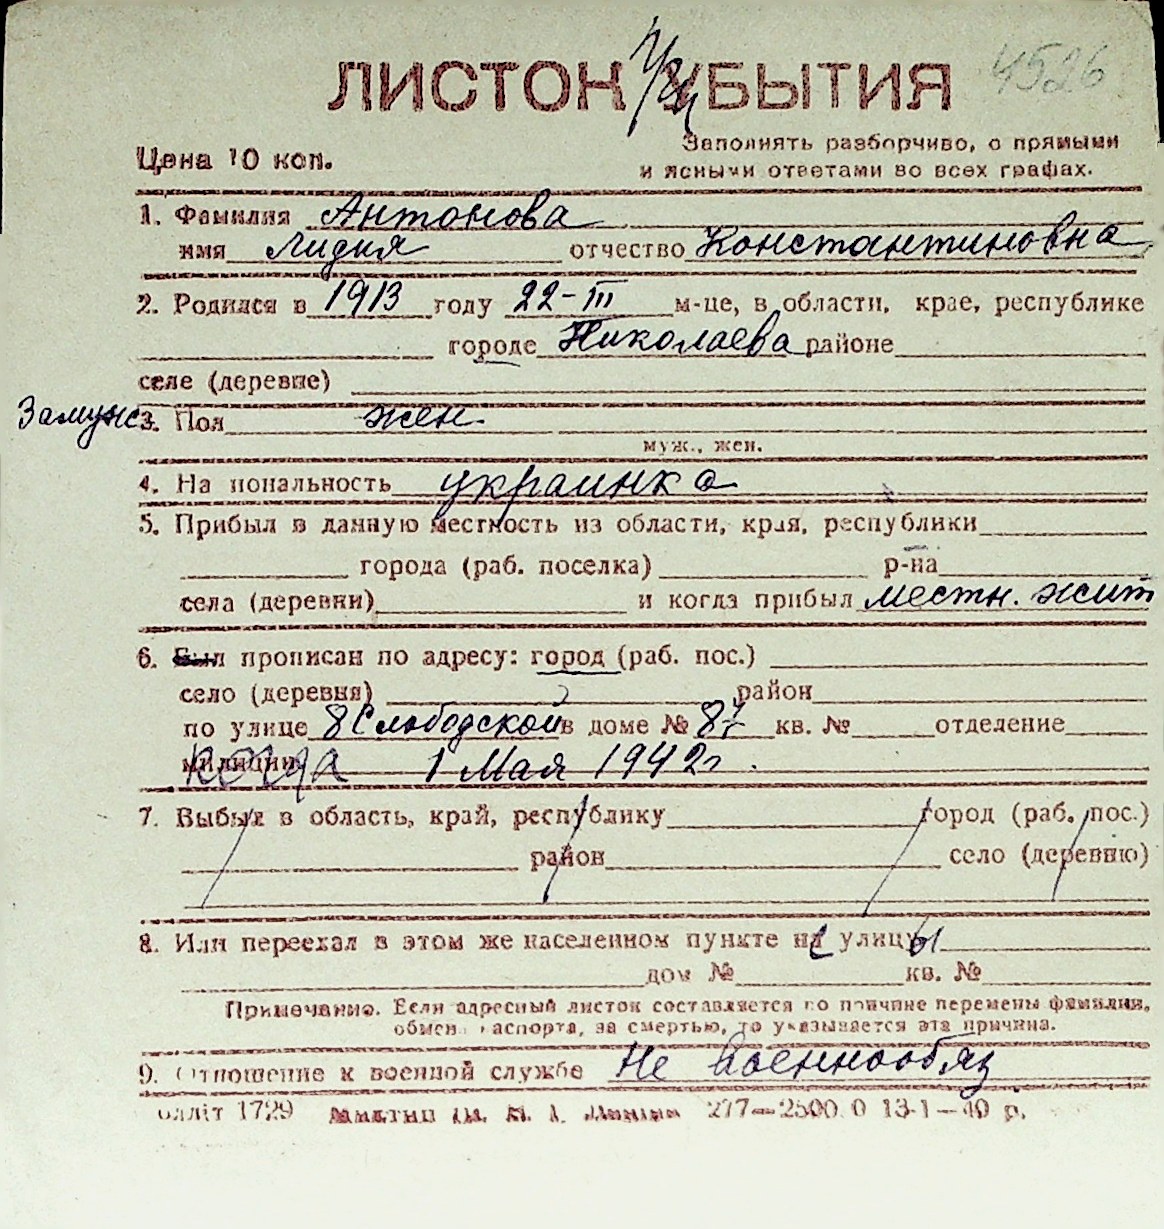 ЛИСТОК УБЫТИЯ 4526
Цена 10 коп.
Заполнять разборчиво, с прямыми
и ясными ответами во всех графах.
1. Фамилия Антонова
имя Лидия отчество Константиновна
2. Родился в 1913 году 22-III м-це, в области, крае, республике
городе Николаева районе
селе (деревне)
Замуж 3. Пол жен.
муж., жен.
4. На иональность украинка
5. Прибыл в данную местность из области, края, республики
города (раб. поселка) р-на
села (деревни) и когда прибыл местн. жит
6. Был прописан по адресу: город (раб. пос.)
село (деревня) район
по улице 8 Слободской в доме № 87 кв. № отделение
милиции когда 1 Мая 1942 г.
7. Выбыл в область, край, республику город (раб. пос.)
район село (деревню)
8. Или переехал в этом же населенном пункте с улицы
дом № кв. №
Примечание. Если адресный листок составляется по причине перемены фамилии,
обмен паспорта, за смертью, то указывается эта причина.
9. Отношение к военной службе Не военнообяз
облліт 1729 277—2500.0 13-1—40 р.